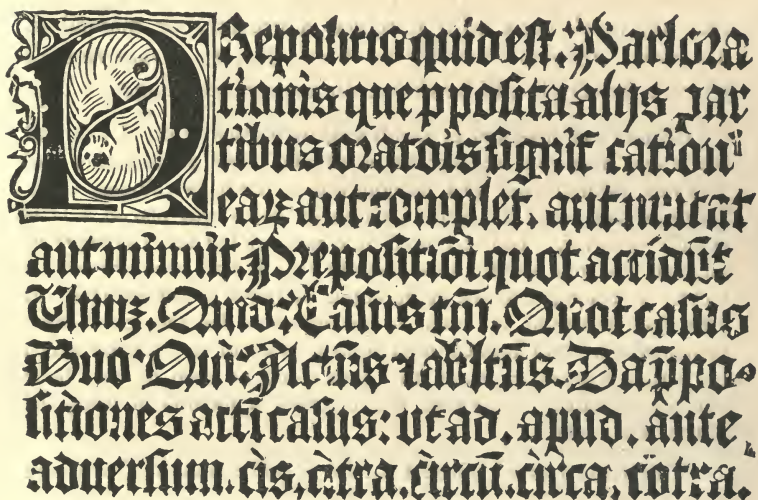 PRepositio quid est. Pars ora
tionis que ꝓposita alijs par
tibus oratōis signif cation
eaꝝ aut complet. aut mutat
aut minuit. Prepositiōi quot accidūt
Unuz. Quid? Casus tm̄. Quot casus
Duo Qui? Actūs ⁊ ablt̄us. Da p̄po⸗
sitiones acti casus: vt ad. apud. ante
aduersum. cis, citra. circū. circa. cōtra.